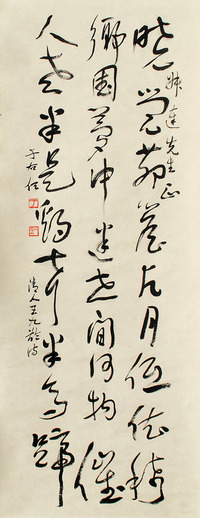 先生正
曉覺茅簷片月低依稀
鄉國夢中迷世間何物催
人老半是鷄聲半馬蹄
清人王九齡詩
于右任